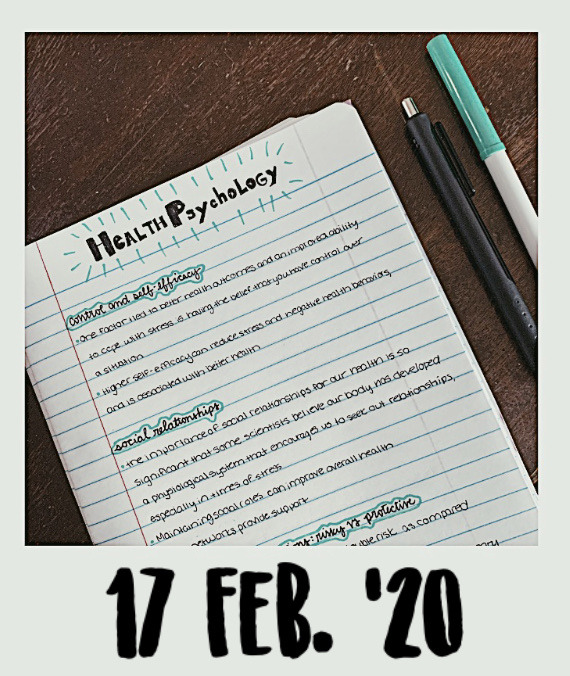 Health Psychology
control and self-efficacy
• one factor tied to better health outcomes and an improved ability
to cope with stress is having the belief that you have control over
a situation
• Higher self-efficacy can reduce stress and negative health behaviors,
and is associated with better health
social relationships
• the importance of social relationships for our health is so
significant that some scientists believe our body has developed
a physiological system that encourages us to seek out relationships,
especially in times of stress
• Maintaining social roles can improve overall health
networks provide support
risky vs protective
risk as compared
17 FEB. '20